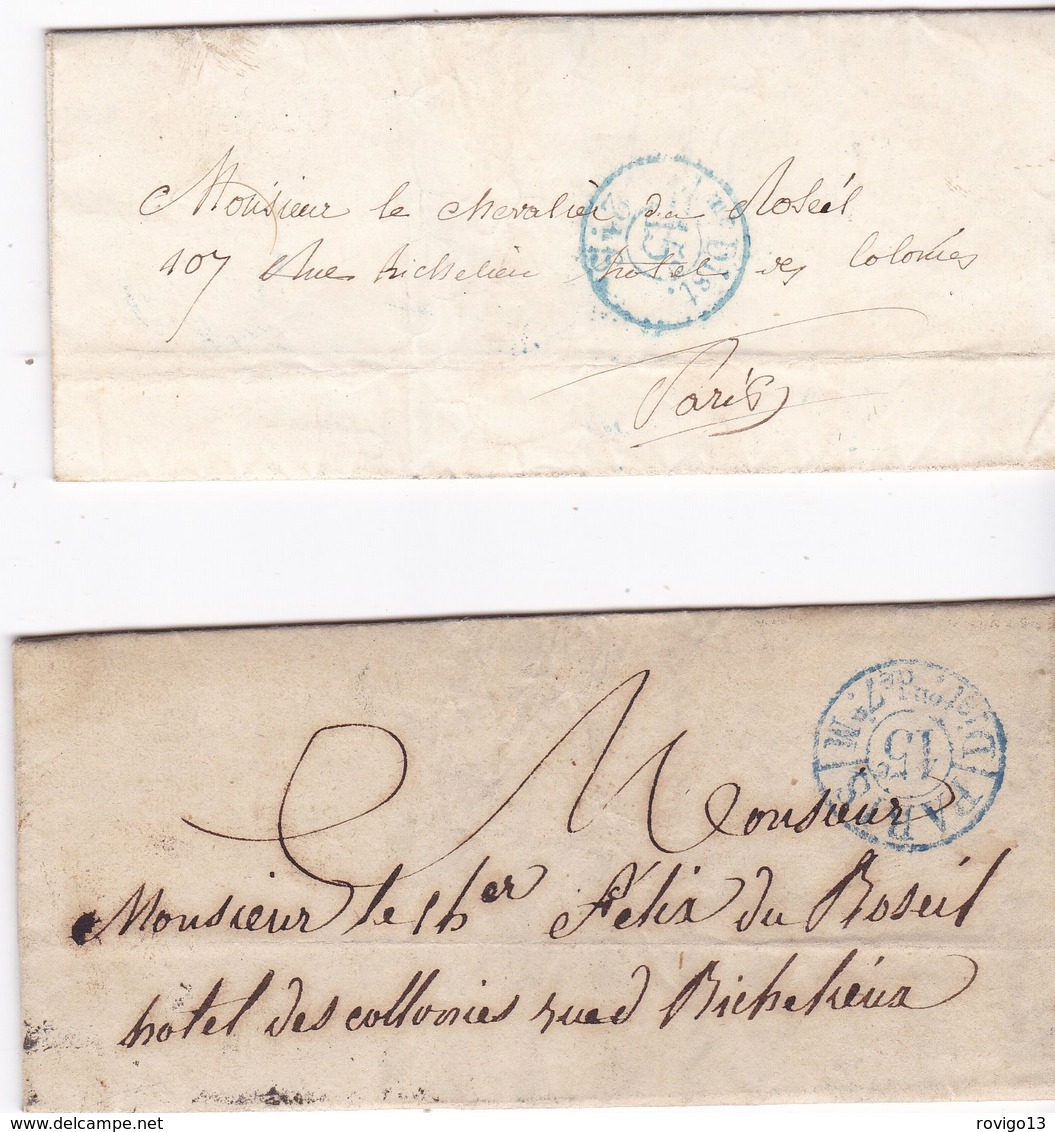 Monsieur le chevalier du Roséil
107 Rue Richelieu hotel des Colonies
15
Paris
15
PARIS
Monsieur
Monsieur le Cher Félix du Roséil
hotel des collonies rue d Richeliéux
www.delcampe.net
rovigo13